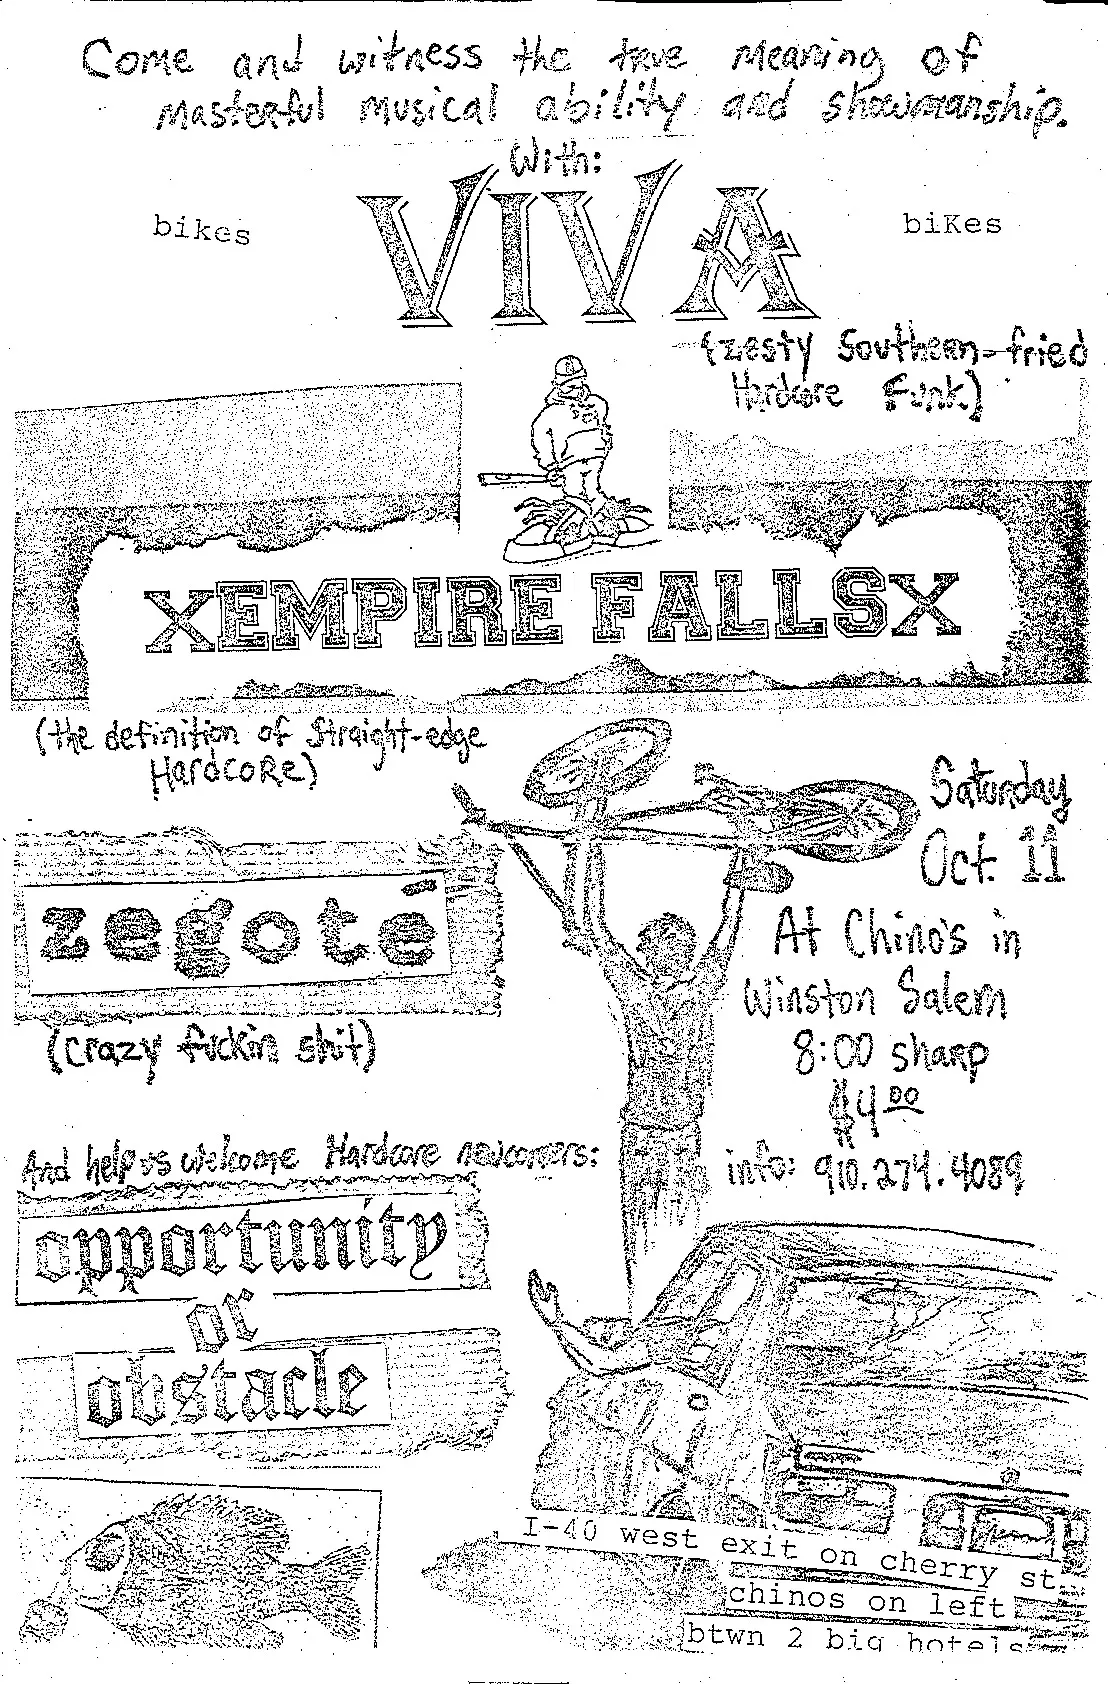 Come and witness the true meaning of
masterful musical ability and showmanship.
With:
bikes
VIVA
biKes
(zesty Southern-fried
Hardcore Funk)
XEMPIRE FALLSX
(the definition of Straight-edge
HardcoRe)
Saturday
Oct. 11
zegoté
At Chino's in
Winston Salem
(crazy fuckin shit)
8:00 sharp
$4.00
And help us welcome Hardcore newcomers:
info: 910.274.4089
opportunity
or
obstacle
I-40 west exit on cherry st.
chinos on left
btwn 2 big hotels